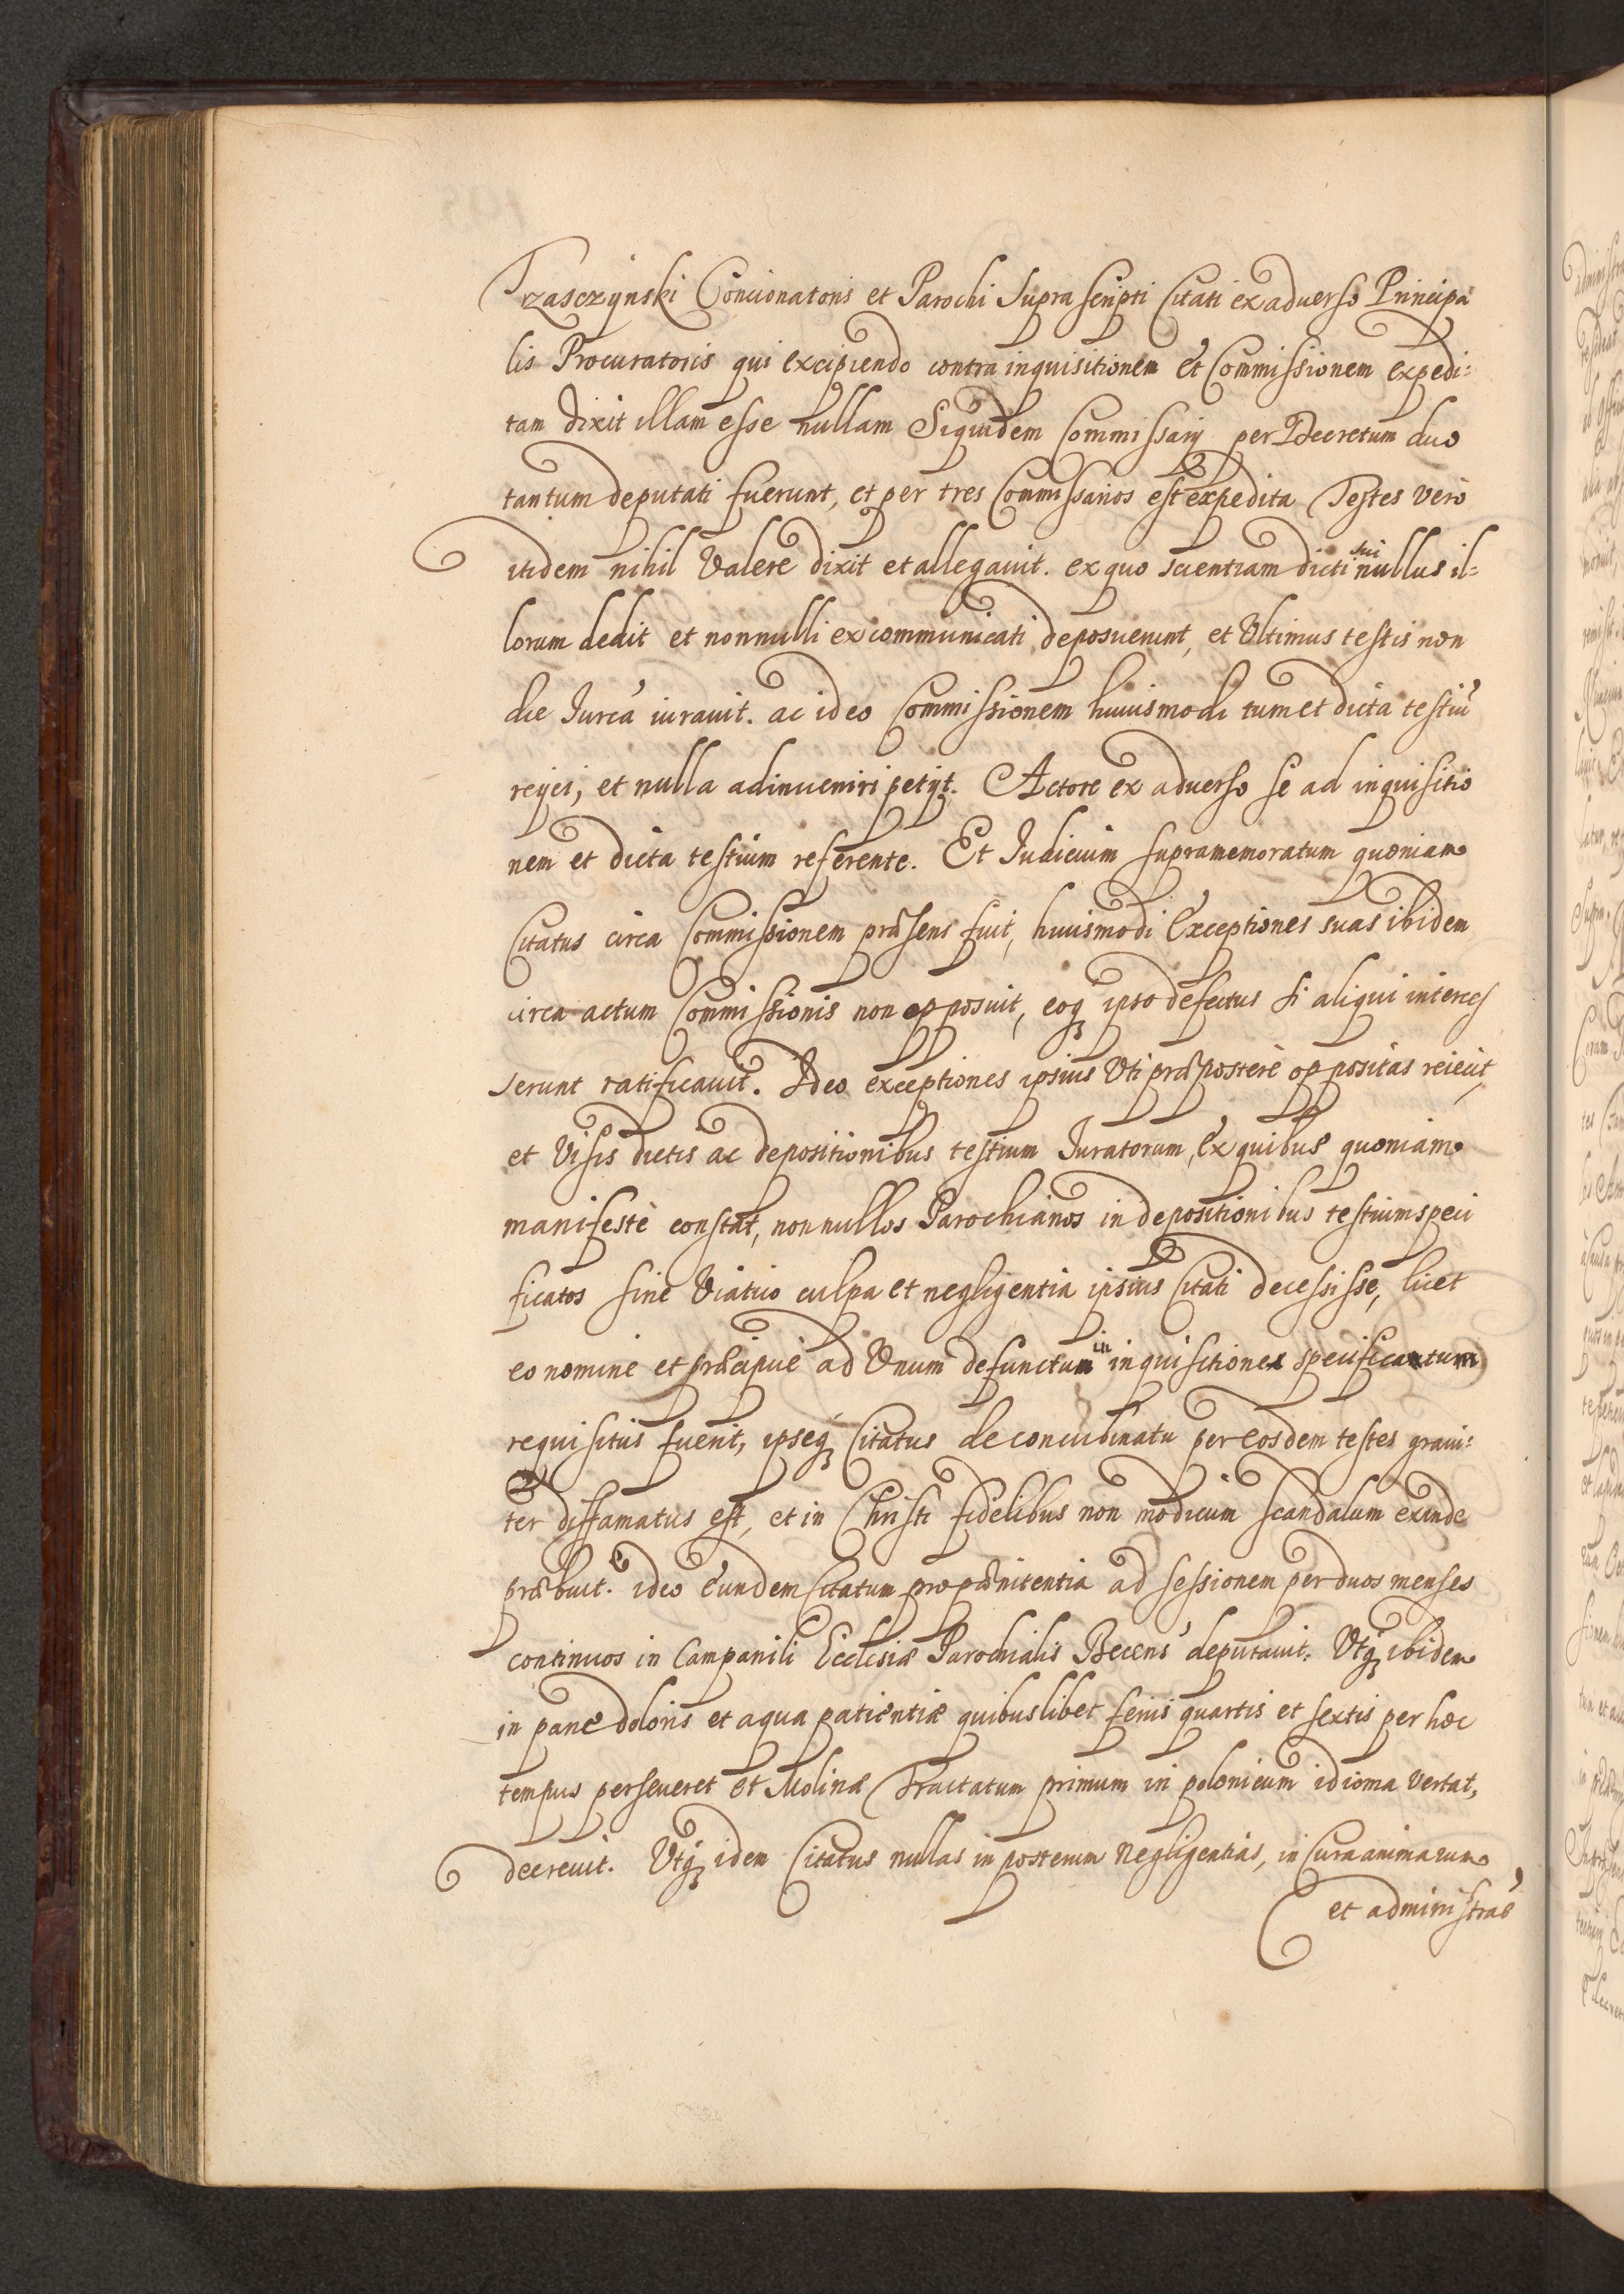 Trzasczynski Concionatoris et Parochi Supra scripti Citati ex aduerso Principa
lis Procuratoris qui excipiendo contra inquisitionem et Commissionem expedi=
tam dixit illam esse nullam Siquidem Commissarij per Decretum duo
tantum deputati fuerunt, et per tres Commissarios est expedita Testes verò
itidem nihil Valere dixit et allegauit. ex quo scientiam dicti sui nullus il=
lorum dedit et nonnulli excommunicati deposuerunt, et Vltimus testis non
die Jurea iurauit. ac ideo Commissionem huiusmodi tum et dicta testiu'
reijci, et nulla adinueniri petijt. Actore ex aduerso se ad inquisitio
nem et dicta testium referente. Et Iudicium supramemoratum quoniam
Citatus circa Commissionem præsens fuit, huiusmodi Exceptiones suas ibidem
circa actum Commissionis non opposuit, eoq; ipso defectus si aliqui interces
serunt ratificauit. Ideo exceptiones ipsius Vti præposterè oppositas reiecit,
et Visis dictis ac depositionibus testium Iuratorum, Ex quibus quoniam
manifestè constat, nonnullos Parochianos in depositionibus testium speci
ficatos sine Viatico culpa et negligentia ipsius Citati decessisse, licet
eo nomine et præcipuè ad Vnum defunctum in inquisitione specificatum
requisitus fuerit, ipseq; Citatus de concubinatu per eosdem testes graui=
ter diffamatus est, et in Christi fidelibus non modicum scandalum exinde
præbuit. ideo Eundem Citatum pro pænitentia ad sessionem per duos menses
continuos in Campanili Ecclesiæ Parochialis Becens' deputauit. Vtq; ibidem
in pane doloris et aqua patientiæ quibuslibet ferijs quartis et sextis per hoc
tempus perseueret et Molinæ Tractatum primum in polonicum idioma vertat,
decreuit. Vtq; idem Citatus nullas in posterum negligentias, in Cura animarum
et administrae'